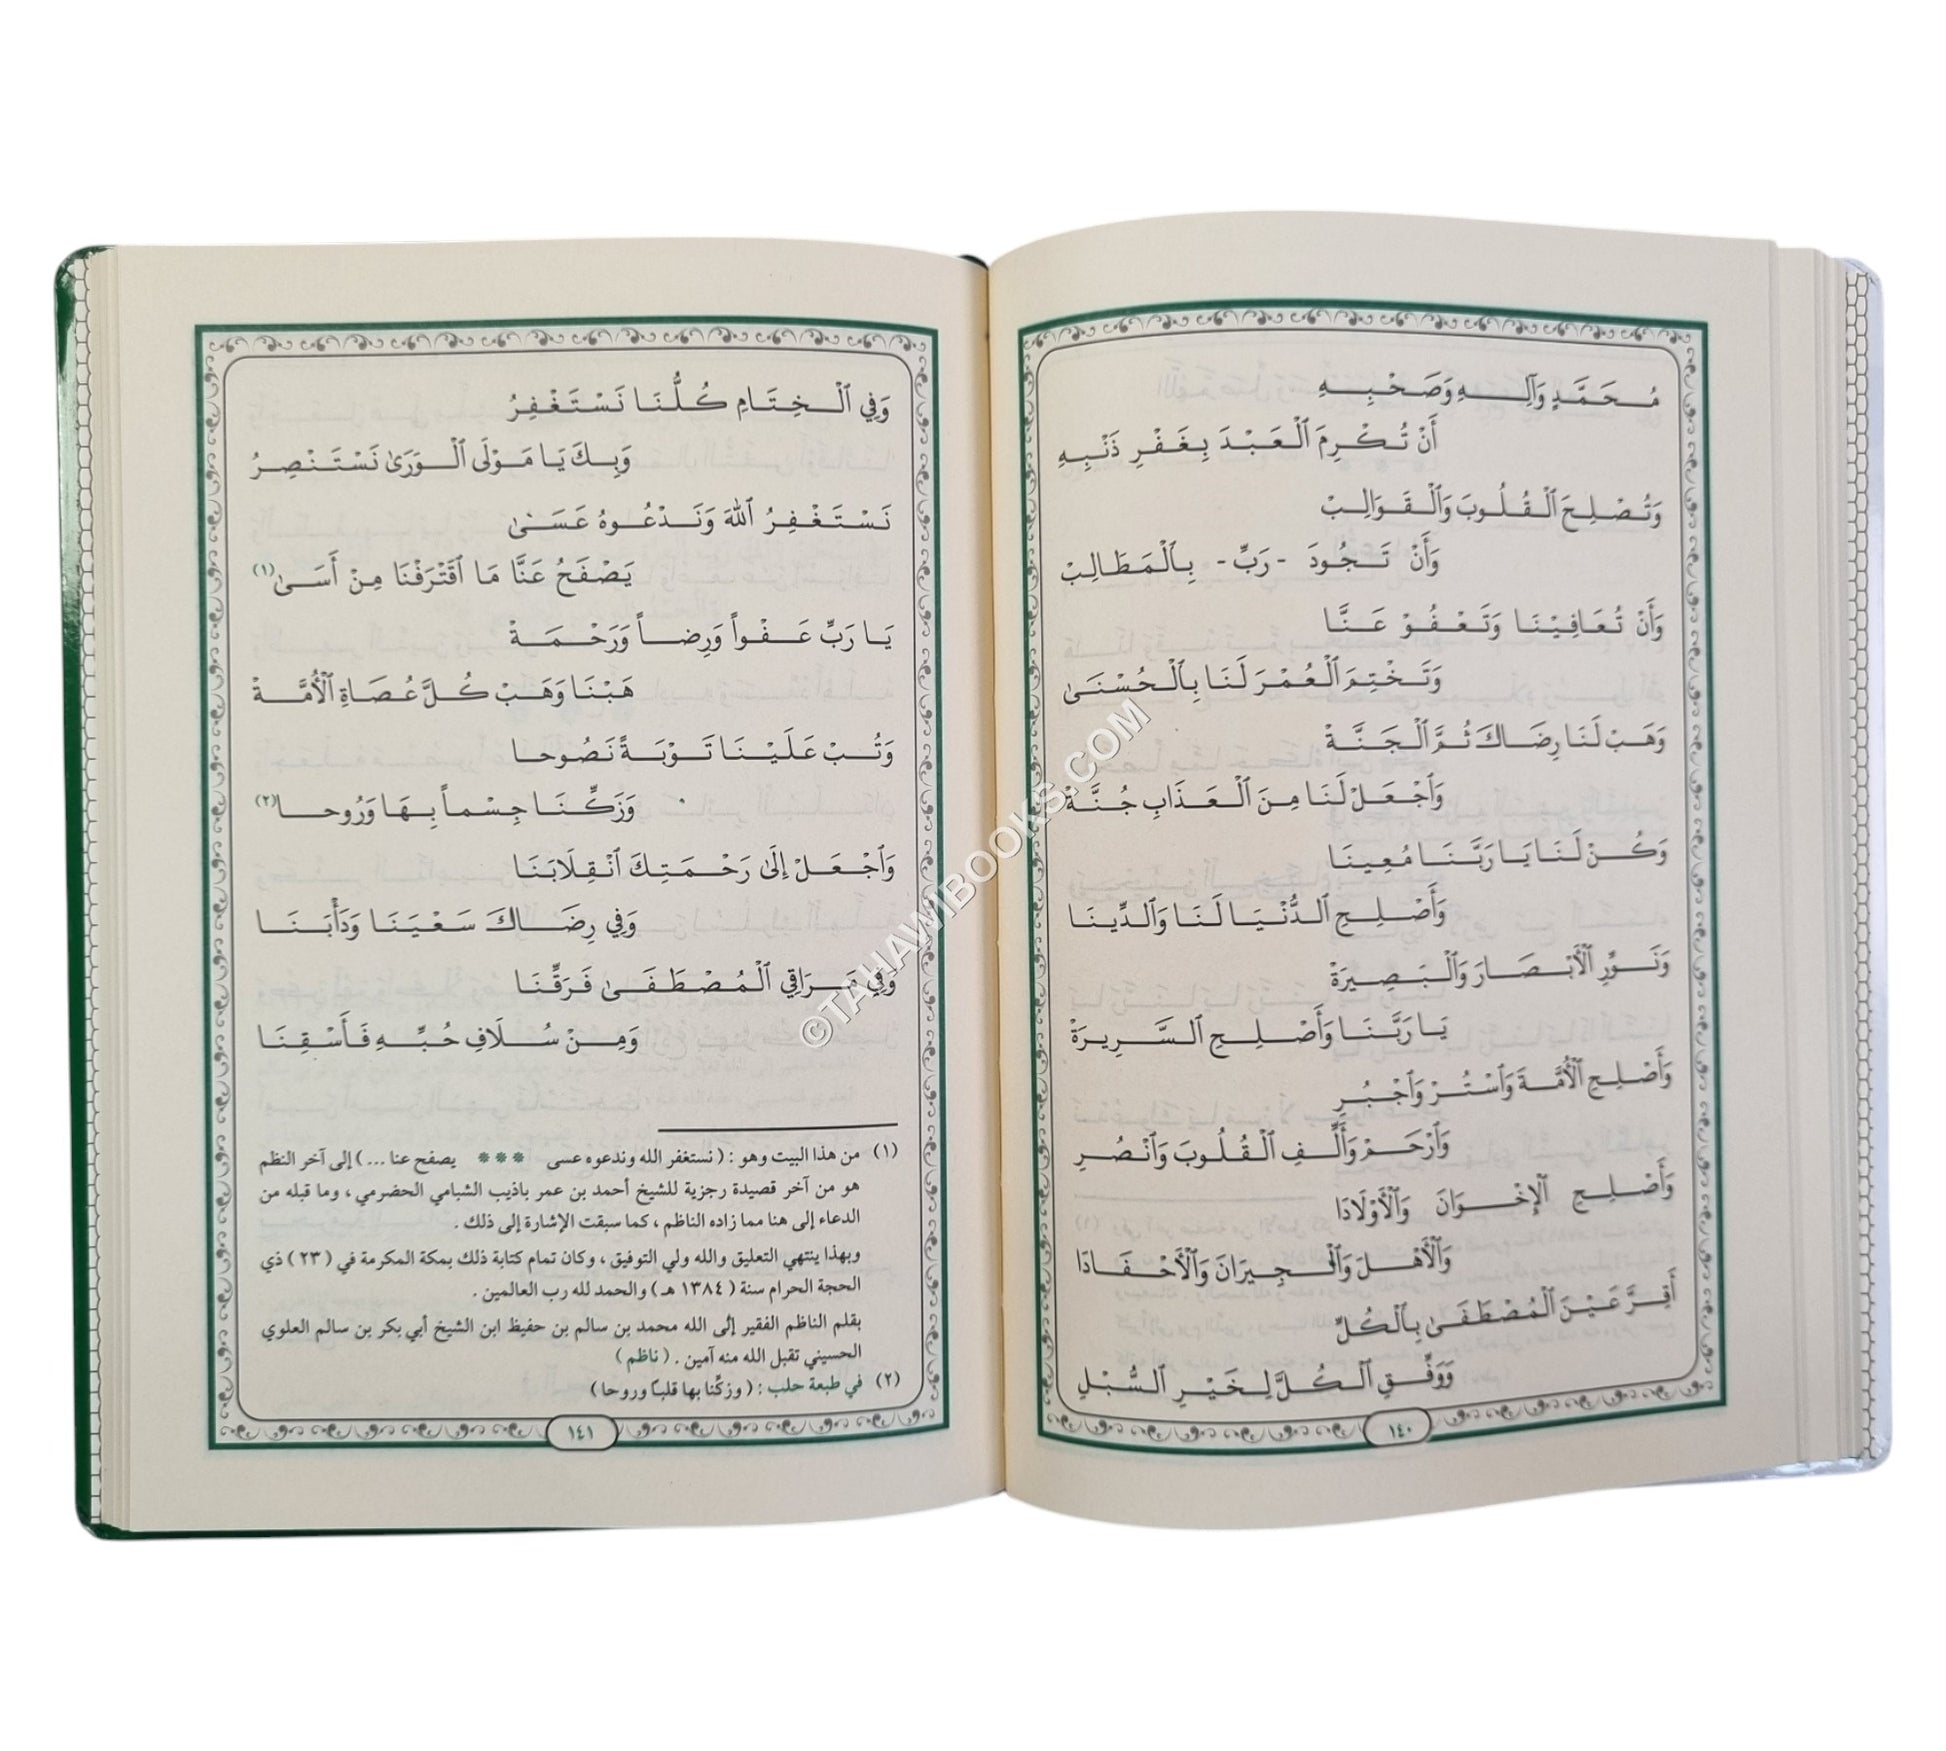 مُحَمَّدٍ وَآلِهِ وَصَحْبِهِ
أَنْ تُكْرِمَ ٱلْعَبْدَ بِغَفْرِ ذَنْبِهِ
وَتُصْلِحَ ٱلْقُلُوبَ وَٱلْقَوَالِبْ
وَأَنْ تَجُودَ - رَبِّ - بِٱلْمَطَالِبْ
وَأَنْ تُعَافِيْنَا وَتَعْفُوْ عَنَّا
وَتَخْتِمَ ٱلْعُمْرَ لَنَا بِٱلْحُسْنَىٰ
وَهَبْ لَنَا رِضَاكَ ثُمَّ ٱلْجَنَّةْ
وَٱجْعَلْ لَنَا مِنَ ٱلْعَذَابِ جُنَّةْ
وَكُنْ لَنَا يَا رَبَّنَا مُعِينَا
وَأَصْلِحِ ٱلدُّنْيَا لَنَا وَٱلدِّينَا
وَنَوِّرِ ٱلْأَبْصَارَ وَٱلْبَصِيرَةْ
يَا رَبَّنَا وَأَصْلِحِ ٱلسَّرِيرَةْ
وَأَصْلِحِ ٱلْأُمَّةَ وَٱسْتُرْ وَٱجْبُرِ
وَٱرْحَمْ وَأَلِّفِ ٱلْقُلُوبَ وَٱنْصُرِ
وَأَصْلِحِ ٱلْإِخْوَانَ وَٱلْأَوْلَادَا
وَٱلْأَهْلَ وَٱلْجِيرَانَ وَٱلْأَحْفَادَا
أَقِرَّ عَيْنَ ٱلْمُصْطَفَىٰ بِٱلْكُلِّ
وَوَفِّقِ ٱلْكُلَّ لِخَيْرِ ٱلسُّبْلِ
١٤٠
وَفِي ٱلْخِتَامِ كُلُّنَا نَسْتَغْفِرُ
وَبِكَ يَا مَوْلَى ٱلْوَرَىٰ نَسْتَنْصِرُ
نَسْتَغْفِرُ ٱللهَ وَنَدْعُوهُ عَسَىٰ
يَصْفَحُ عَنَّا مَا ٱقْتَرَفْنَا مِنْ أَسَىٰ(١)
يَا رَبِّ عَفْواً وَرِضاً وَرَحْمَةْ
هَبْنَا وَهَبْ كُلَّ عُصَاةِ ٱلْأُمَّةْ
وَتُبْ عَلَيْنَا تَوْبَةً نَصُوحا
وَزَكِّنَا جِسْماً بِهَا وَرُوحا(٢)
وَٱجْعَلْ إِلَىٰ رَحْمَتِكَ ٱنْقِلَابَنَا
وَفِي رِضَاكَ سَعْيَنَا وَدَأْبَنَا
وَفِي مَرَاقِي ٱلْمُصْطَفَىٰ فَرَقِّنَا
وَمِنْ سُلَافِ حُبِّهِ فَأَسْقِنَا
(١) من هذا البيت وهو : ( نستغفر الله وندعوه عسى *** يصفح عنا ... ) إلى آخر النظم
هو من آخر قصيدة رجزية للشيخ أحمد بن عمر باذيب الشبامي الحضرمي ، وما قبله من
الدعاء إلى هنا مما زاده الناظم ، كما سبقت الإشارة إلى ذلك .
وبهذا ينتهي التعليق والله ولي التوفيق ، وكان تمام كتابة ذلك بمكة المكرمة في ( ٢٣ ) ذي
الحجة الحرام سنة ( ١٣٨٤ هـ ) والحمد لله رب العالمين .
بقلم الناظم الفقير إلى الله محمد بن سالم بن حفيظ ابن الشيخ أبي بكر بن سالم العلوي
الحسيني تقبل الله منه آمين . ( ناظم )
(٢) في طبعة حلب : ( وزكِّنا بها قلباً وروحا )
١٤١
©TAHAWIBOOKS.COM